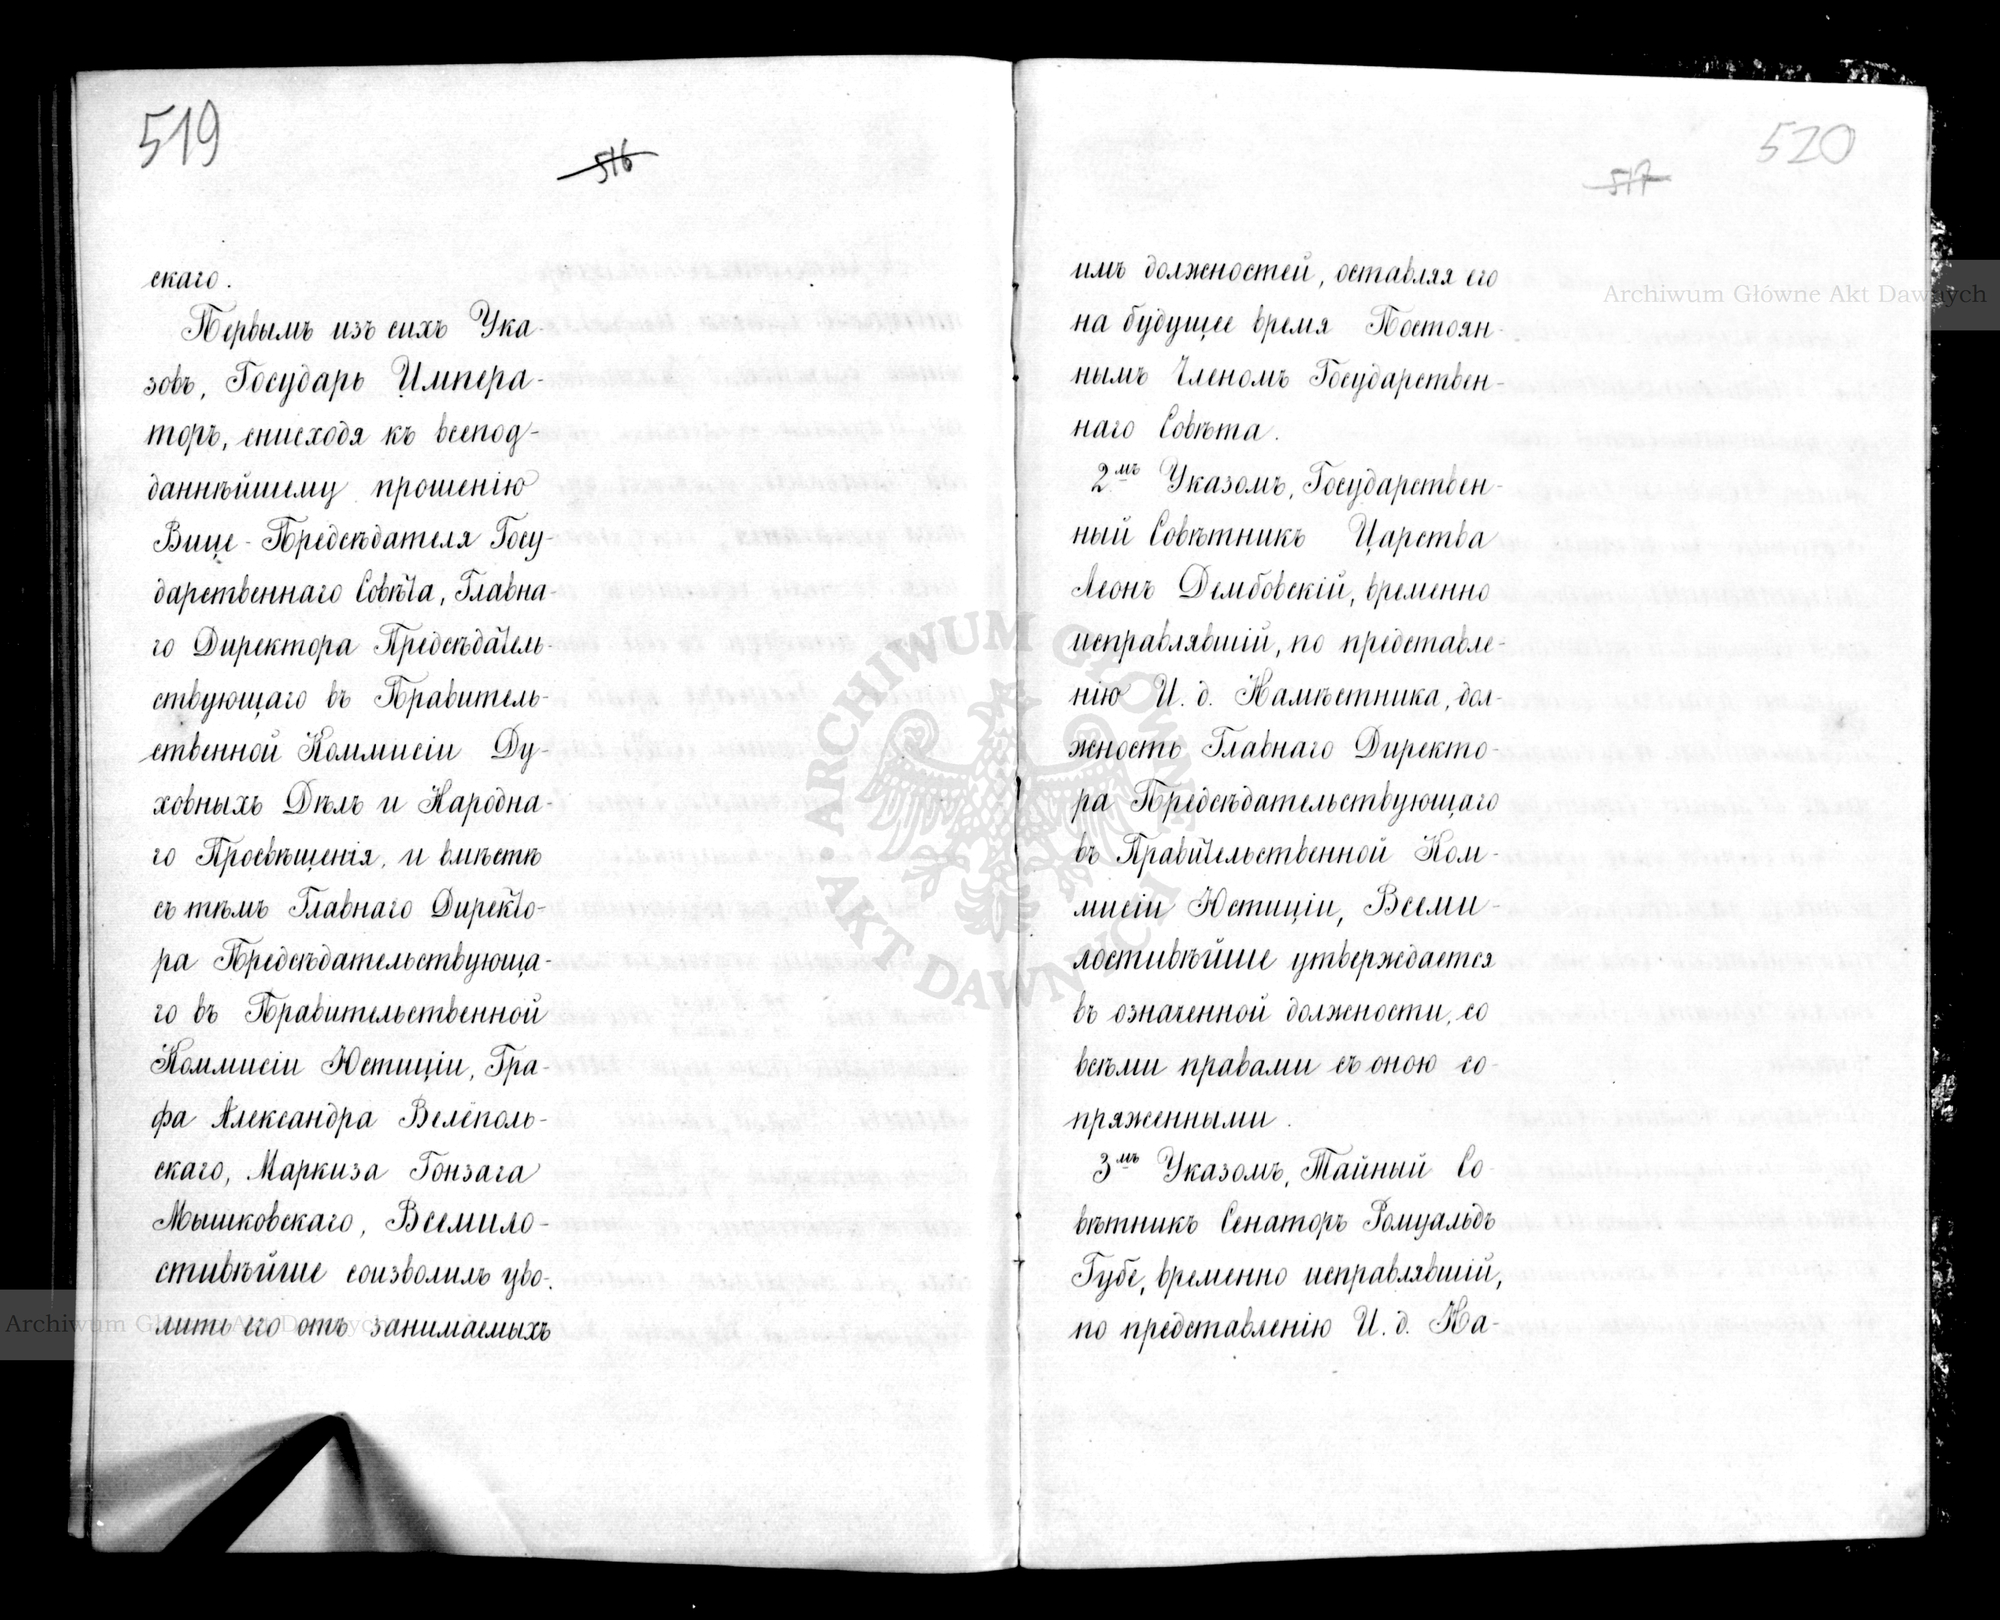 519
516
скаго.
Первымъ изъ сихъ Ука-
зовъ, Государь Импера-
торъ, снисходя къ всепод-
даннѣйшему прошенію
Вице-Предсѣдателя Госу-
дарственнаго Совѣта, Главна-
го Директора Предсѣдатель-
ствующаго въ Правитель-
ственной Коммисіи Ду-
ховныхъ Дѣлъ и Народна-
го Просвѣщенія, и вмѣстѣ
съ тѣмъ Главнаго Директо-
ра Предсѣдательствующа-
го въ Правительственной
Коммисіи Юстиціи, Гра-
фа Александра Велёполь-
скаго, Маркиза Гонзага
Мышковскаго, Всемило-
стивѣйше соизволилъ уво-
лить его отъ занимаемыхъ
520
517
имъ должностей, оставляя его
на будущее время Постоян-
нымъ Членомъ Государствен-
наго Совѣта.
2.мъ Указомъ, Государствен-
ный Совѣтникъ Царства
Леонъ Дембовскій, временно
исправлявшій, по представле-
нію И. д. Намѣстника, дол-
жность Главнаго Директо-
ра Предсѣдательствующаго
въ Правительственной Ком-
мисіи Юстиціи, Всеми-
лостивѣйше утверждается
въ означенной должности, со
всѣми правами съ оною со-
пряженными.
3.мъ Указомъ, Тайный Со-
вѣтникъ Сенаторъ Ромуальдъ
Губе, временно исправлявшій,
по представленію И. д. На-
Archiwum Główne Akt Dawnych
Archiwum Główne Akt Dawnych
ARCHIWUM GŁÓWNE AKT DAWNYCH